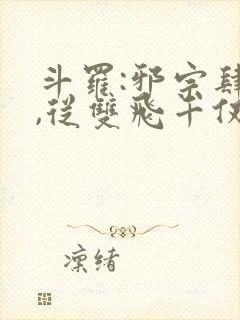 斗羅:邪宗肆
,從雙飛千仞
凜緒